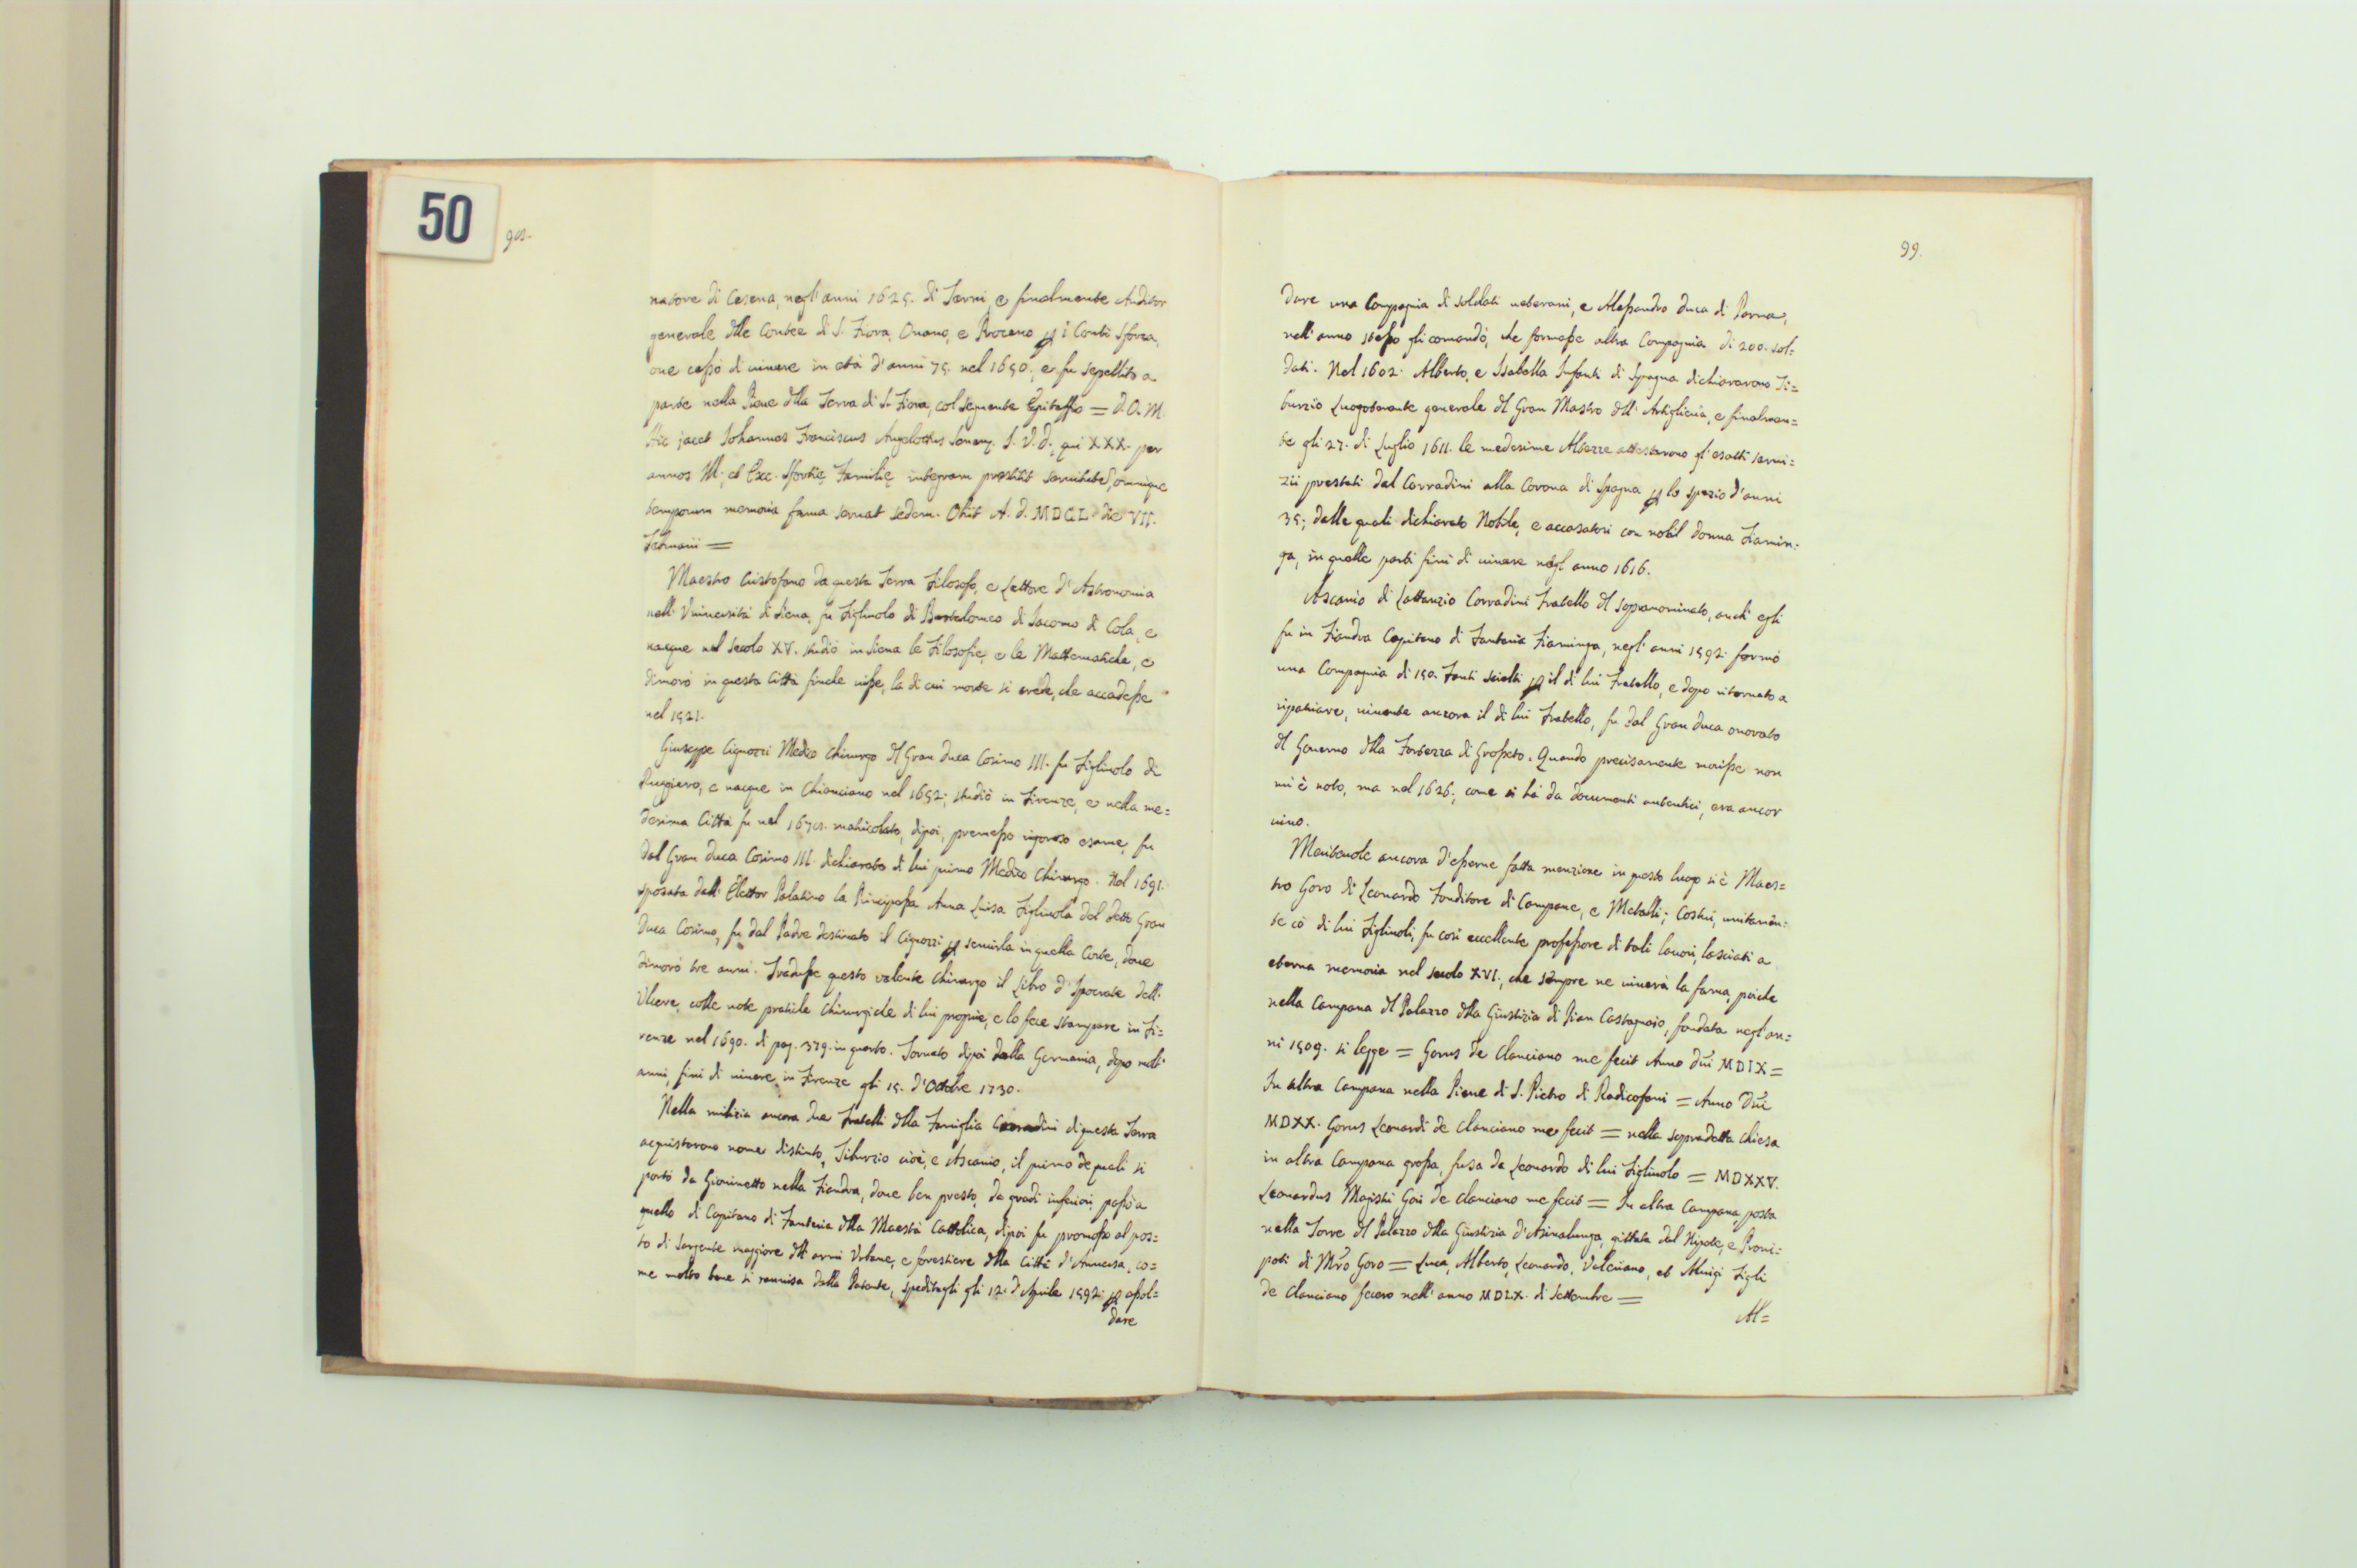 50
98.
natore di Cesena, negl'anni 1625. di Terni, e finalmente Auditor
generale dlle Contee di S. Fiora, Onano, e Proceno p i Conti Sforza,
oue cessò di uiuere in età d'anni 75. nel 1650., e fu sepellito a
parte nella Pieue dlla Terra di S. Fiora, col seguente Epitaffio = D. O. M.
Hic jacet Johannes Franciscus Angelottus Senen. J. V. D., qui XXX. per
annos Ill. et Exc. Sfortię Familię integram præstitit seruitutẽ, omnique
temporum memoria fama seruat sedem. Obiit A. D. MDCL die VII.
Februarii =
Maestro Cristofano da questa Terra Filosofo, e Lettore d'Astronomia
nell'Vniuersità di Siena, fu Figliuolo di Bartolomeo di Iacomo di Cola, e
nacque nel secolo XV. studiò in Siena le Filosofie, e le Mattematiche, e
dimorò in questa Città finche uisse, la di cui morte si crede, che accadesse
nel 1521.
Giuseppe Cignozzi Medico Chirurgo dl Gran Duca Cosimo III. fu Figliuolo di
Ruggiero, e nacque in Chianciano nel 1652; studiò in Firenze, e nella me=
desima Città fu nel 1678. matricolato, dipoi, premesso rigoroso esame, fu
dal Gran Duca Cosimo III. dichiarato di lui primo Medico Chirurgo. Nel 1691.
sposata dall'Elettor Palatino la Principessa Anna Luisa Figliuola del detto Gran
Duca Cosimo, fu dal Padre destinato il Cignozzi p seruirla in quella Corte, doue
dimorò tre anni. Tradusse questo valente Chirurgo il Libro d'Ipocrate dell'
Vlcere, colle note pratiche Chirurgiche di lui proprie, e lo fece stampare in Fi=
renze nel 1690. di pag. 379. in quarto. Tornato dipoi dalla Germania, dopo molt'
anni, finì di uiuere in Firenze gli 15. d'Ottobre 1730.
Nella milizia ancora due Fratelli dlla Famiglia Corradini di questa Terra
acquistarono nome distinto, Tiburzio cioè, e Ascanio, il primo de quali si
portò da Giouinetto nella Fiandra, doue ben presto, da gradi inferiori, passò a
quello di Capitano di Fanteria dlla Maestà Cattolica, dipoi fu promosso al pos=
to di Sargente maggiore dll'armi Vrbane, e forestiere dlla Città d'Annuersa, co=
me molto bene si rauuisa dalla Patente, speditagli gli 12. d'Aprile 1592. p assol=
dare
99.
dare una Compagnia di soldati ueterani, e Alessandro Duca di Parma,
nell'anno stesso gli comandò, che formasse altra Compagnia di 200. sol=
dati. Nel 1602. Alberto, e Isabella Infanti di Spagna dichiararono Ti=
burzio Luogotenente generale dl Gran Mastro dll'Artiglieria, e finalmen=
te gli 27. di Luglio 1611. le medesime Altezze attestarono gl'esatti serui=
zii prestati dal Corradini alla Corona di Spagna p lo spazio d'anni
35; dalle quali dichiarato Nobile, e accasatosi con nobil donna Fiamin=
ga, in quelle parti finì di uiuere negl'anno 1616.
Ascanio di Lattanzio Corradini Fratello dl sopranominato, anch'egli
fu in Fiandra Capitano di Fanteria Fiaminga, negl'anni 1592. formò
una Compagnia di 150. Fanti scielti p il di lui Fratello, e dopo ritornato a
ripatriare, uiuente ancora il di lui Fratello, fu dal Gran Duca onorato
dl Gouerno dlla Fortezza di Grosseto. Quando precisamente morisse non
mi è noto, ma nel 1626; come si hà da documenti autentici, era ancor
uiuo.
Meriteuole ancora d'esserne fatta menzione in questo luogo si è Maes=
tro Goro di Leonardo Fonditore di Campane, e Metalli; Costui, unitamen=
te cò di lui Figliuoli, fu così eccellente professore di tali lauori, lasciati a
eterna memoria nel secolo XVI., che sempre ne uiuerà la fama, poiche
nella Campana dl Palazzo dlla Giustizia di Pian Castagnaio, fondata negl'an=
ni 1509. si legge = Gorus de Clanciano me fecit Anno Dñi MDIX =
In altra Campana nella Pieue di S. Pietro di Radicofani = Anno Dñi
MDXX. Gorus Leonardi de Clanciano me fecit = nella sopradetta Chiesa
in altra Campana grossa, fusa da Leonardo di lui Figliuolo = MDXXV.
Leonardus Magistri Gori de Clanciano me fecit = In altra Campana, posta
nella Torre dl Palazzo dlla Giustizia d'Asinalunga, gittata dal Nipote, e Proni=
poti di Mrõ Goro = Luca, Alberto, Leonardo, Valeriano, et Aluigi Figli
de Clanciano fecero nell'anno MDLX. di Settembre =
Al=